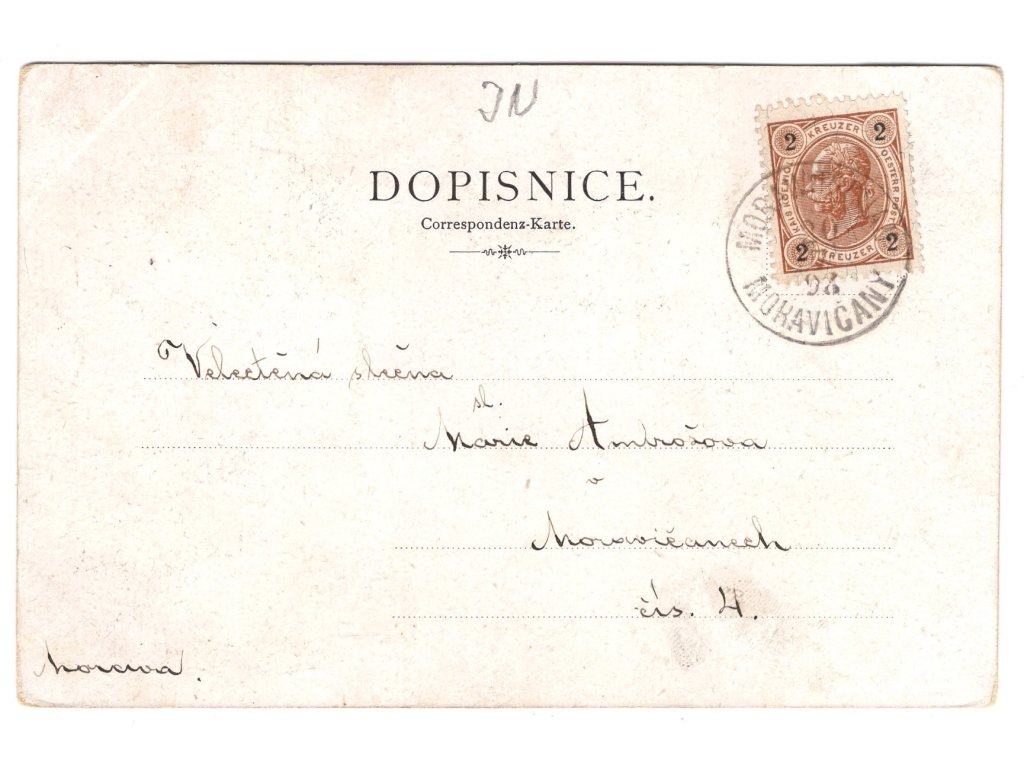 JN
DOPISNICE.
Correspondenz-Karte.
2 KREUZER 2
KAIS. KOENIGL. OESTERR. POST
2 KREUZER 2
98
MORAVIČANY
Velectěná slečna
sl.
Marie Ambrošova
v
Moravičanech
čís. 4.
Morava.